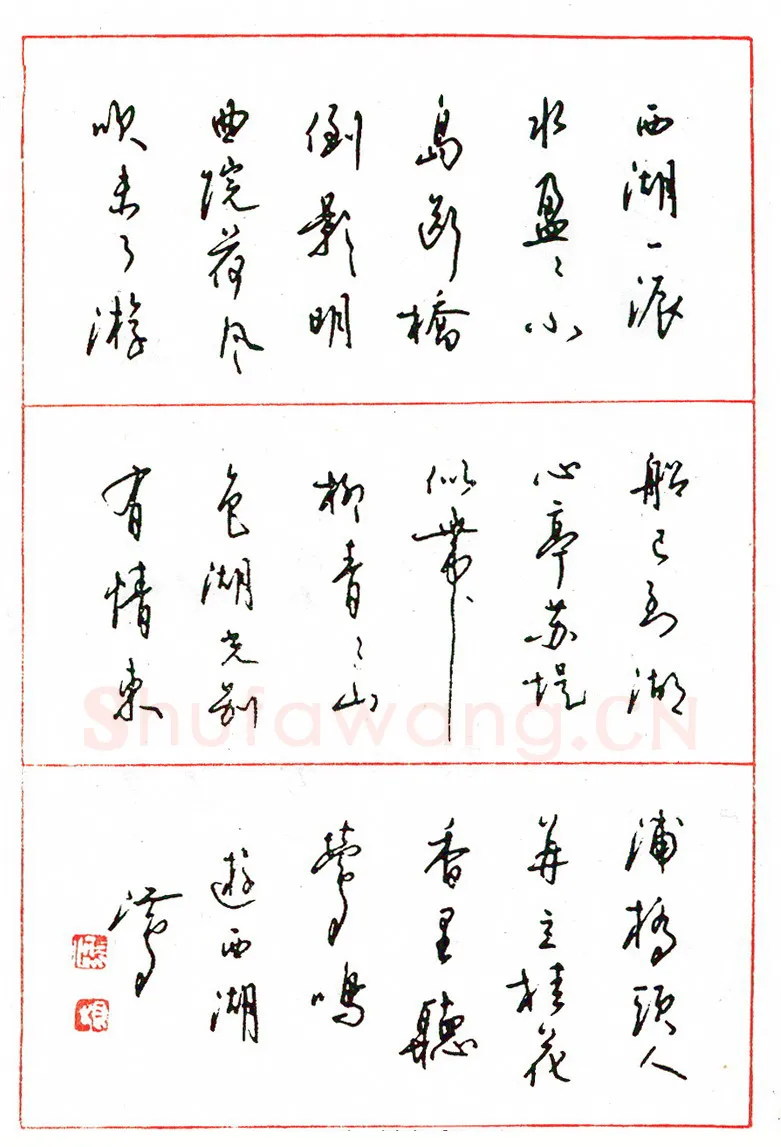 西湖一派
水盈々小
島断橋
倒影明
曲院荷风
吹未了游
船已到湖
心亭苏堤
似带
柳青々山
色湖光别
有情東
浦橋頭人
并立桂花
香里聽
莺鸣
遊西湖
Shufawang.CN